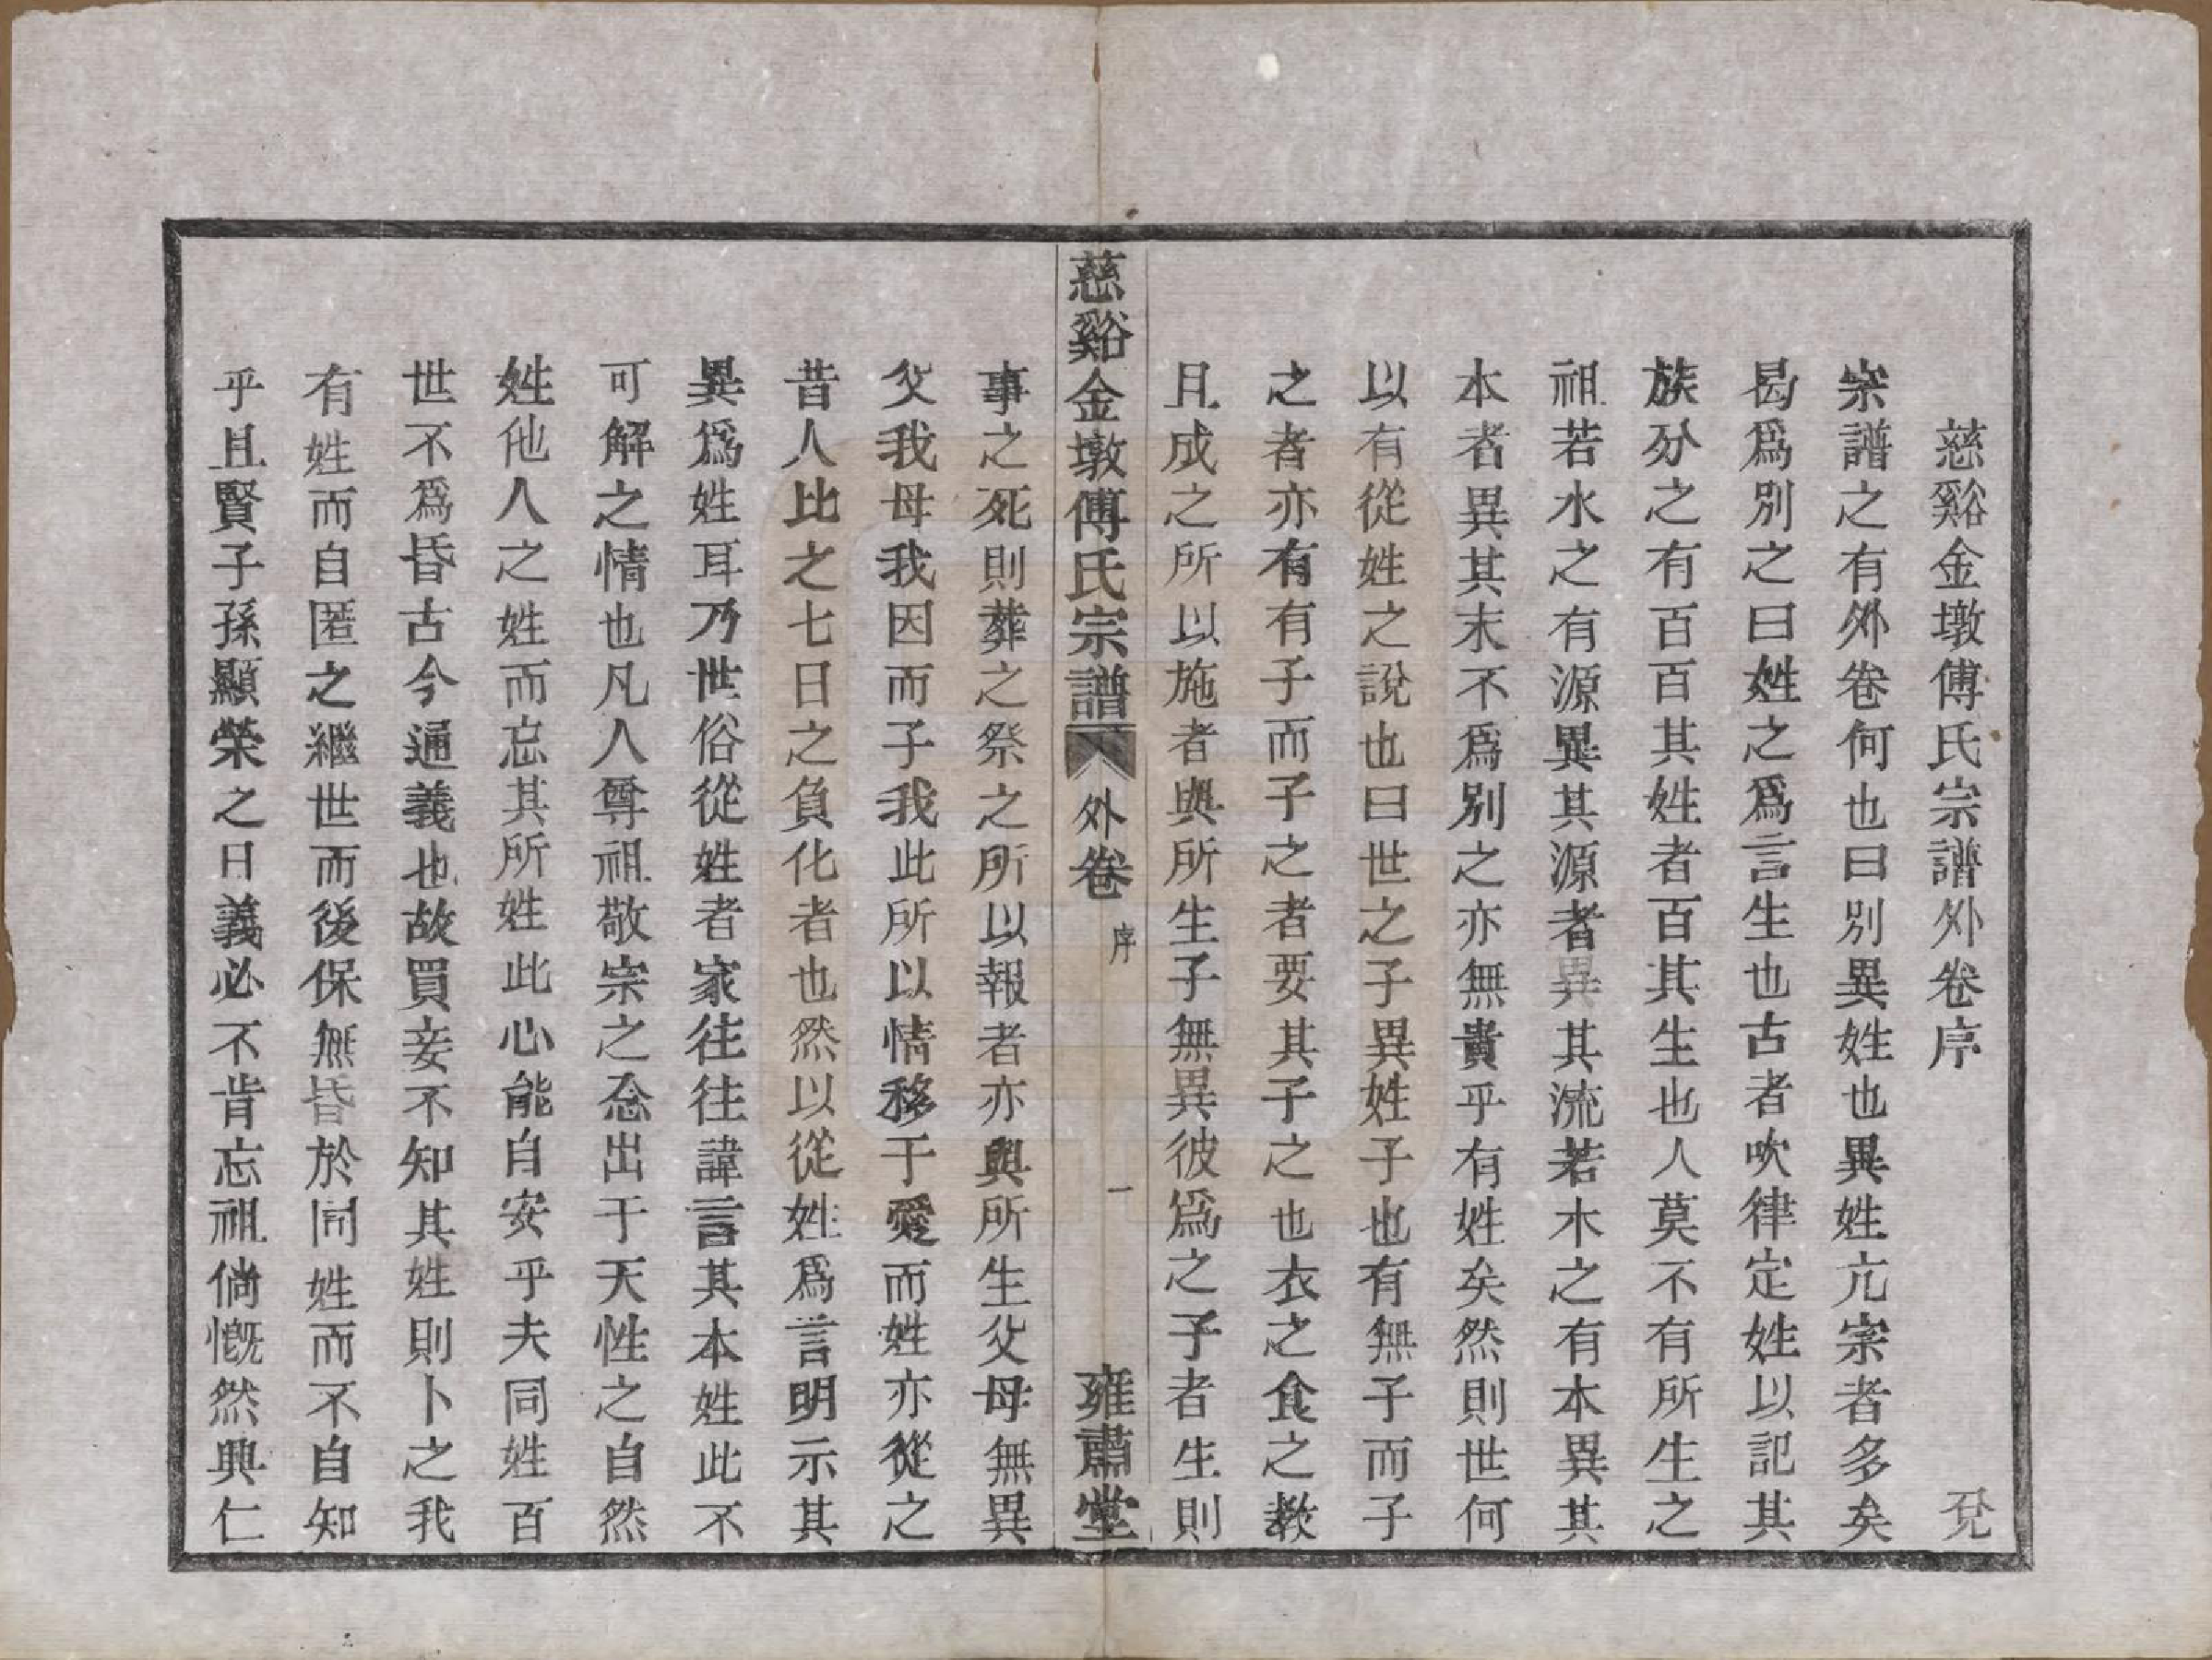 慈谿金墩傅氏宗譜外卷序
兊
宗譜之有外卷何也曰別異姓也異姓亢宗者多矣
曷爲別之曰姓之爲言生也古者吹律定姓以記其
族分之有百百其姓者百其生也人莫不有所生之
祖若水之有源異其源者異其流若木之有本異其
本者異其末不爲別之亦無貴乎有姓矣然則世何
以有從姓之說也曰世之子異姓子也有無子而子
之者亦有有子而子之者要其子之也衣之食之教
且成之所以施者與所生子無異彼爲之子者生則
慈谿金墩傅氏宗譜 外卷 序 一 雍肅堂
事之死則葬之祭之所以報者亦與所生父母無異
父我母我因而子我此所以情移于愛而姓亦從之
昔人比之七日之負化者也然以從姓爲言明示其
異爲姓耳乃世俗從姓者家往往諱言其本姓此不
可解之情也凡人尊祖敬宗之念出于天性之自然
姓他人之姓而忘其所姓此心能自安乎夫同姓百
世不爲昏古今通義也故買妾不知其姓則卜之我
有姓而自匿之繼世而後保無昏於同姓而不自知
乎且賢子孫顯榮之日義必不肯忘祖倘慨然興仁